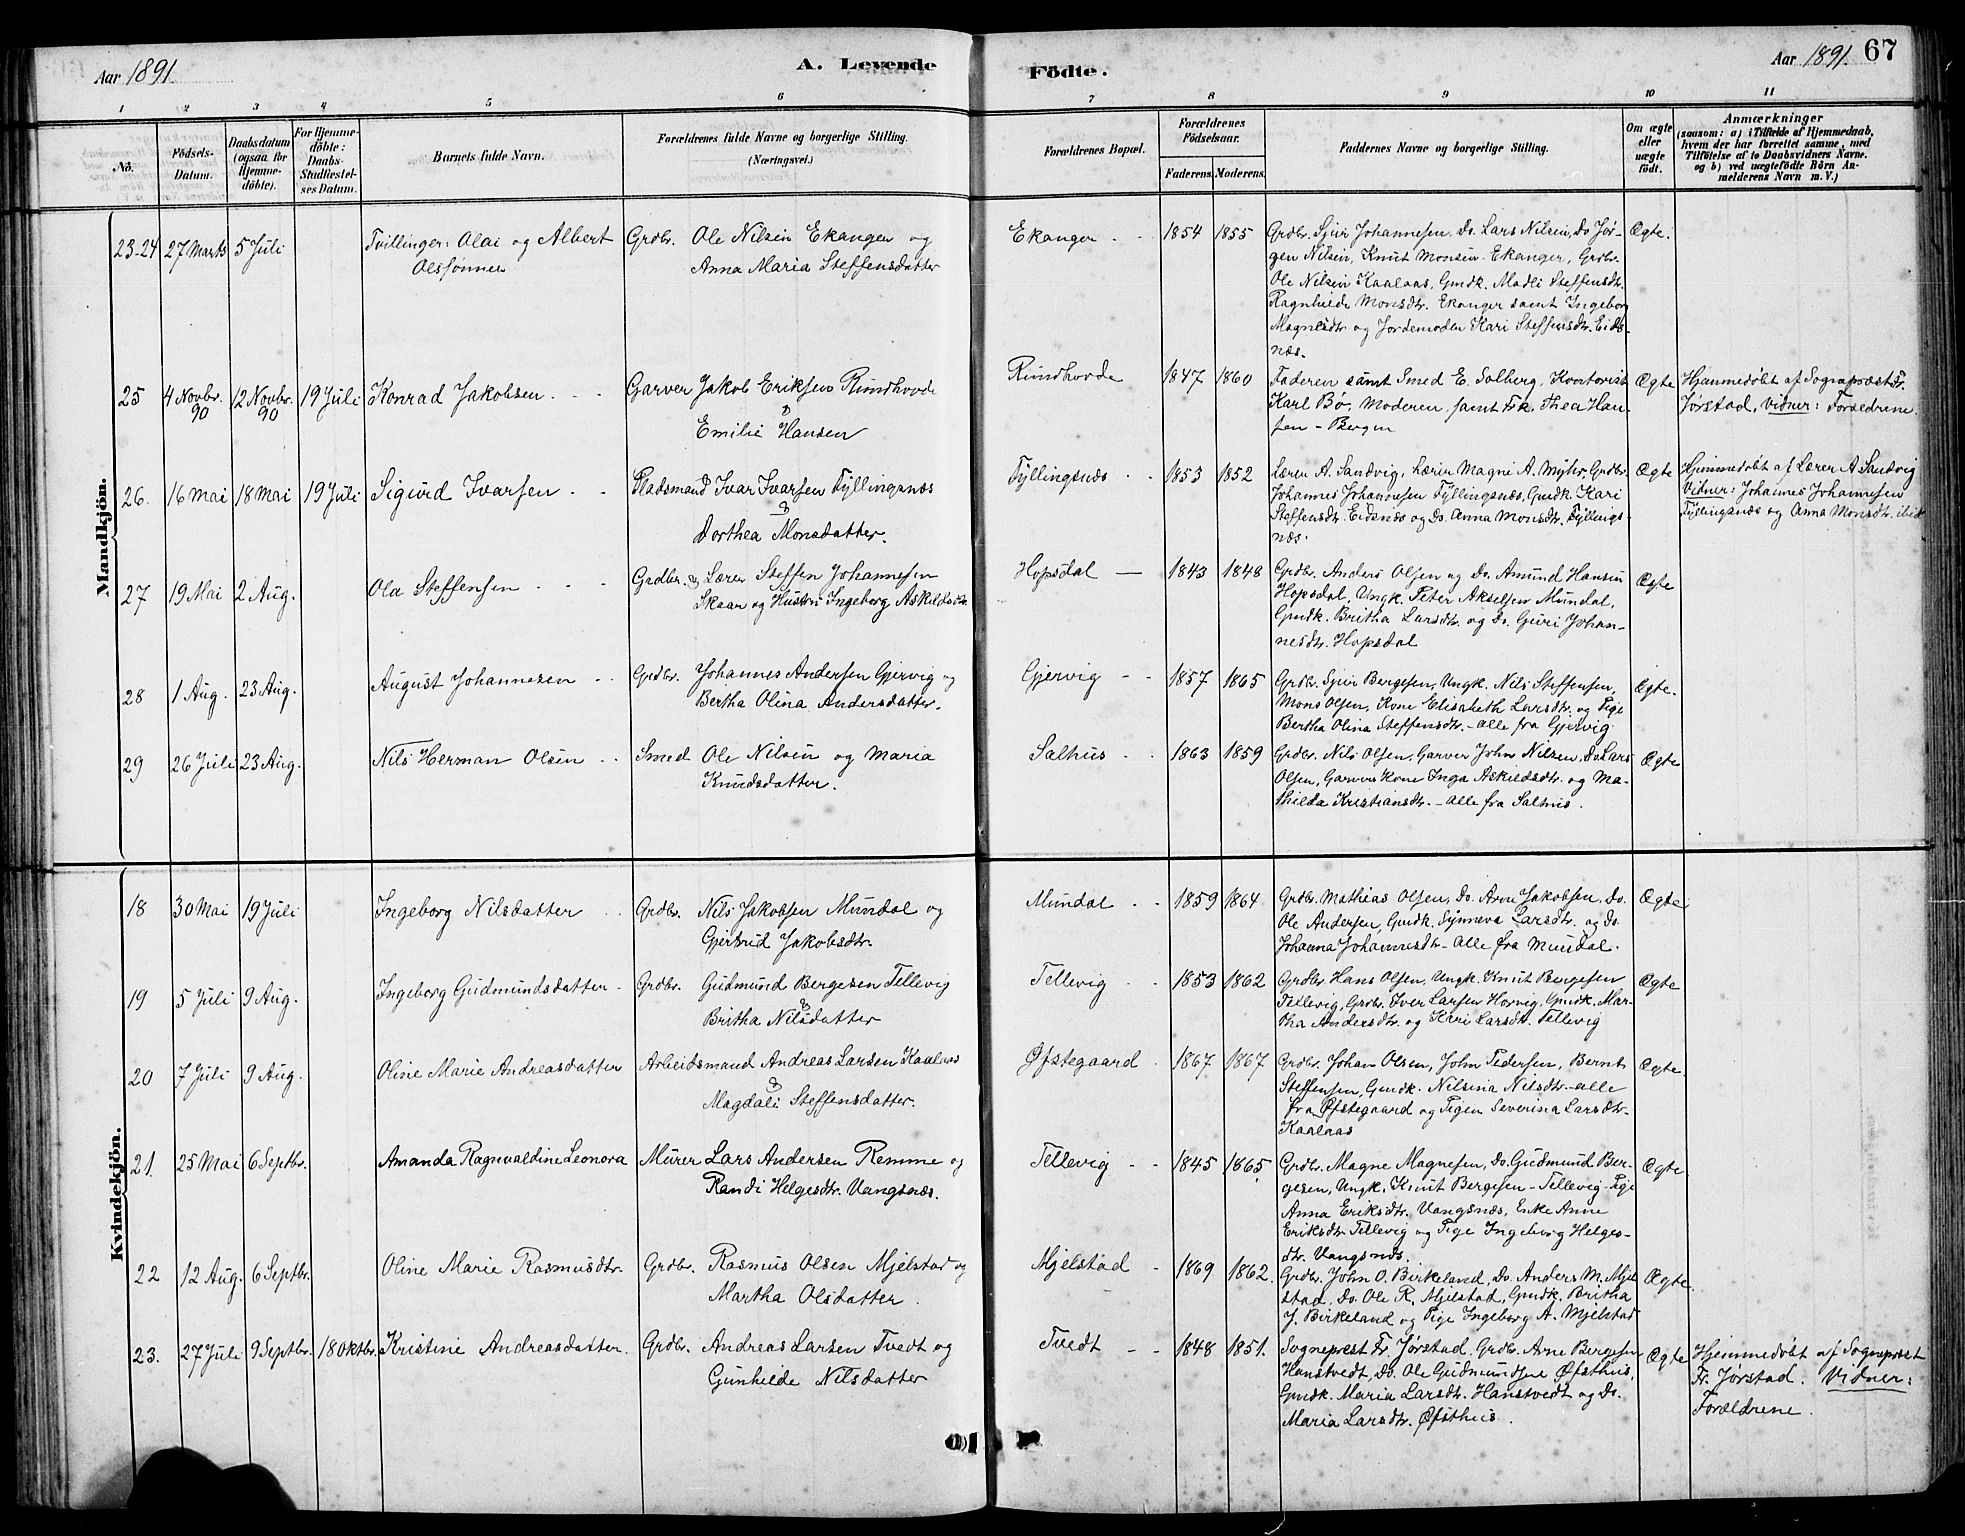 Aar 1891.
A. Levende
Födte.
Aar 1891. 67
1 2 3 4 5 6 7 8 9 10 11
No.
Födsels-
Datum.
Daabsdatum
(ogsaa for
Hjemme-
döbte).
For Hjemme-
döbte:
Daabs-
Stadfæstel-
ses Datum.
Barnets fulde Navn.
Forældrenes fulde Navne og borgerlige Stilling.
(Næringsvei.)
Forældrenes Bopæl.
Forældrenes
Födselsaar.
Faderens. Moderens.
Faddernes Navne og borgerlige Stilling.
Om ægte
eller
uægte
födt.
Anmærkninger
(saasom: a) i Tilfælde af Hjemmedaab,
hvem der har forrettet samme, med
Tilföielse af to Daabsvidners Navne.
og b) ved uægtefödte Börn An-
melderens Navn m. V.)
Mandkjön.
23-24 27 Marts 5 Juli
Tvillinger: Olai og Albert
Olssønner
Grdbr. Ole Nilsen Ekangen og
Anna Maria Steffensdatter
Ekanger - - 1854 1855
Grdbr. Sjur Johannesen, Do. Lars Nilsen, Do Jør-
gen Nilsen, Knut Monsen Ekanger, Grdbr.
Ole Nilsen Kaalaas, Gmdk. Madli Steffensdtr.
Ragnhilde Monsdtr. Ekanger samt Ingeborg
Magnesdtr og Jordemoder Kari Steffensdtr. Eids-
næs.
Ægte.
25 4 Novbr. 90 12 Novbr. 90 19 Juli
Konrad Jakobsen - - -
Garver Jakob Eriksen Rundhovde
&
Emilie Hansen
Rundhovde 1847 1860
Faderen samt Smed E. Solberg, Kontorist
Karl Bø, Moderen, samt Frk. Thea Han-
sen - Bergen
Ægte
Hjemmedøbt af Sognepræst Fr.
Jørstad, Vidner: Forældrene.
26. 16 Mai 18 Mai 19 Juli
Sigurd Ivarsen - -
Pladsmand Ivar Ivarsen Fyllingsnæs
&
Dorthea Monsdatter.
Fyllingsnæs - - 1853 1852
Lærer A. Sandvig, Lærer Magne A. Myhr, Grdbr.
Johannes Johannesen Fyllingsnæs, Gmdk. Kari
Steffensdtr. Eidsnæs og Do. Anna Monsdtr. Fyllings-
næs.
Ægte
Hjemmedøbt af Lærer A Sandvig
Vidner: Johannes Johannesen
Fyllingsnæs og Anna Monsdtr. ibid
27 19 Mai 2 Aug.
Ola Steffensen - - -
Grdbr. & Lærer Steffen Johannesen
Skaar og Hustru Ingeborg Askildsdtr.
Hopsdal — 1843 1848
Grdbr. Anders Olsen og Do. Amund Hansen
Hopsdal, Ungk. Peter Akselsen Mundal,
Gmdk. Britha Larsdtr. og Do. Guri Johan-
nesdtr. Hopsdal
Ægte
28 1 Aug. 23 Aug.
August Johannesen - -
Grdbr. Johannes Andersen Gjervig og
Bertha Olina Andersdatter.
Gjervig - - 1857 1865
Grdbr. Sjur Bergesen, Ungk. Nils Steffensen,
Mons Olsen, Kone Elisabeth Larsdtr. og Pige
Bertha Olina Steffensdtr. - alle fra Gjervig
Ægte.
29 26 Juli 23 Aug.
Nils Herman Olsen - -
Smed Ole Nilsen og Maria
Knudsdatter.
Salhus - - 1863 1859
Grdbr. Nils Olsen, Garver John Nilsen, Do Lars
Olsen, Garvers Kone Inga Askildsdtr. og Ma-
thilda Kristiansdtr. - alle fra Salhus.
Ægte
Kvindekjön.
18 30 Mai 19 Juli
Ingeborg Nilsdatter - -
Grdbr. Nils Jakobsen Mundal og
Gjertrud Jakobsdtr.
Mundal - - 1859 1864
Grdbr. Mathias Olsen, Do. Arne Jakobsen, Do.
Ole Andersen, Gmdk. Synneva Larsdtr. og Do.
Johanna Johannesdtr - alle fra Mundal.
Ægte
19 5 Juli 9 Aug.
Ingeborg Gudmundsdatter -
Grdbr. Gudmund Bergesen Tellevig
&
Britha Nilsdatter
Tellevig - - 1853 1862
Grdbr Hans Olsen, Ungk. Knut Bergesen
Tellevig, Grdbr. Iver Larsen Horvig, Gmdk. Mar-
tha Andersdtr. og Kari Larsdtr. Tellevig
Ægte
20 7 Juli 9 Aug.
Oline Marie Andreasdatter
Arbeidsmand Andreas Larsen Kaalaas
&
Magdali Steffensdatter.
Øfstegaard - 1867 1867
Grdbr. Johan Olsen, John Pedersen, Bernt
Steffensen, Gmdk. Nilsina Nilsdtr. - alle
fra Øfstegaard og Pigen Severina Larsdtr.
Kaalaas
Ægte.
21. 25 Mai 6 Septbr.
Amanda Ragnvaldine Leonora
Murer Lars Andersen Remme og
Randi Helgesdtr. Vangsnæs.
Tellevig - - 1845 1865
Grdbr. Magne Magnesen, Do. Gudmund Ber-
gesen, Ungk. Knut Bergesen - Tellevig - Pige
Anna Eriksdtr. Vangsnæs, Enke Anne
Eriksdtr. Tellevig og Pige Ingeborg Helges-
dtr. Vangsnæs.
Ægte
22 12 Aug. 6 Septbr.
Oline Marie Rasmusdtr.
Grdbr. Rasmus Olsen Mjelstad og
Martha Olsdatter.
Mjelstad - 1869 1862.
Grdbr. John O. Birkeland, Do. Anders M. Mjel
stad, Do. Ole R. Mjelstad, Gmdk. Britha
J. Birkeland og Pige Ingeborg A. Mjelstad
Ægte.
23. 27 Juli 9 Septbr. 18 Oktbr.
Kristine Andreasdatter.
Grdbr. Andreas Larsen Tvedt og
Gunhilde Nilsdatter
Tvedt - - 1848 1851.
Sogneprest Fr. Jørstad, Grdbr. Arne Bergesen
Hanstvedt, Do. Ole Gudmundsen Øfsthus,
Gmdk. Maria Larsdtr. Hanstvedt og Do.
Maria Larsdtr. Øfsthus.
Ægte
Hjemmedøbt af Sogneprest
Fr. Jørstad. Vidner:
Forældrene.